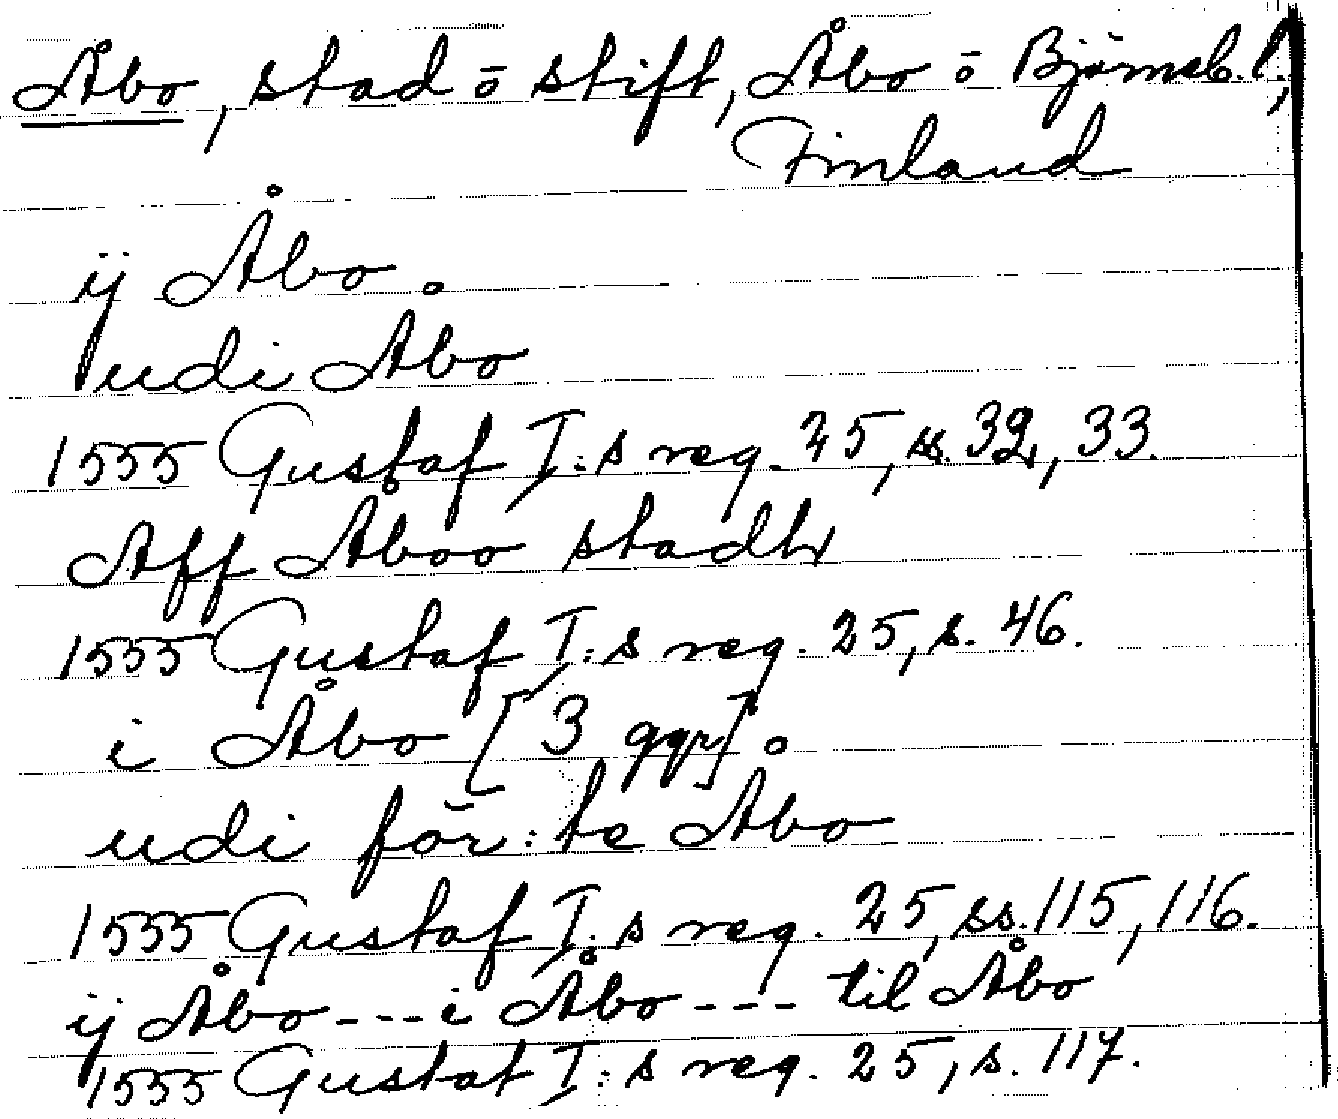 Åbo, stad ō stift, Åbo ō Björneb. l.,
Finland
ij Åbo
udi Åbo
1555 Gustaf I:s reg. 25, ss. 32, 33.
Aff Åboo stadh
1555 Gustaf I:s reg. 25, s. 46.
i Åbo [3 ggr]
udi för:te Åbo
1555 Gustaf I:s reg. 25, ss. 115, 116.
ij Åbo --- i Åbo --- til Åbo
1555 Gustaf I:s reg. 25, s. 117.